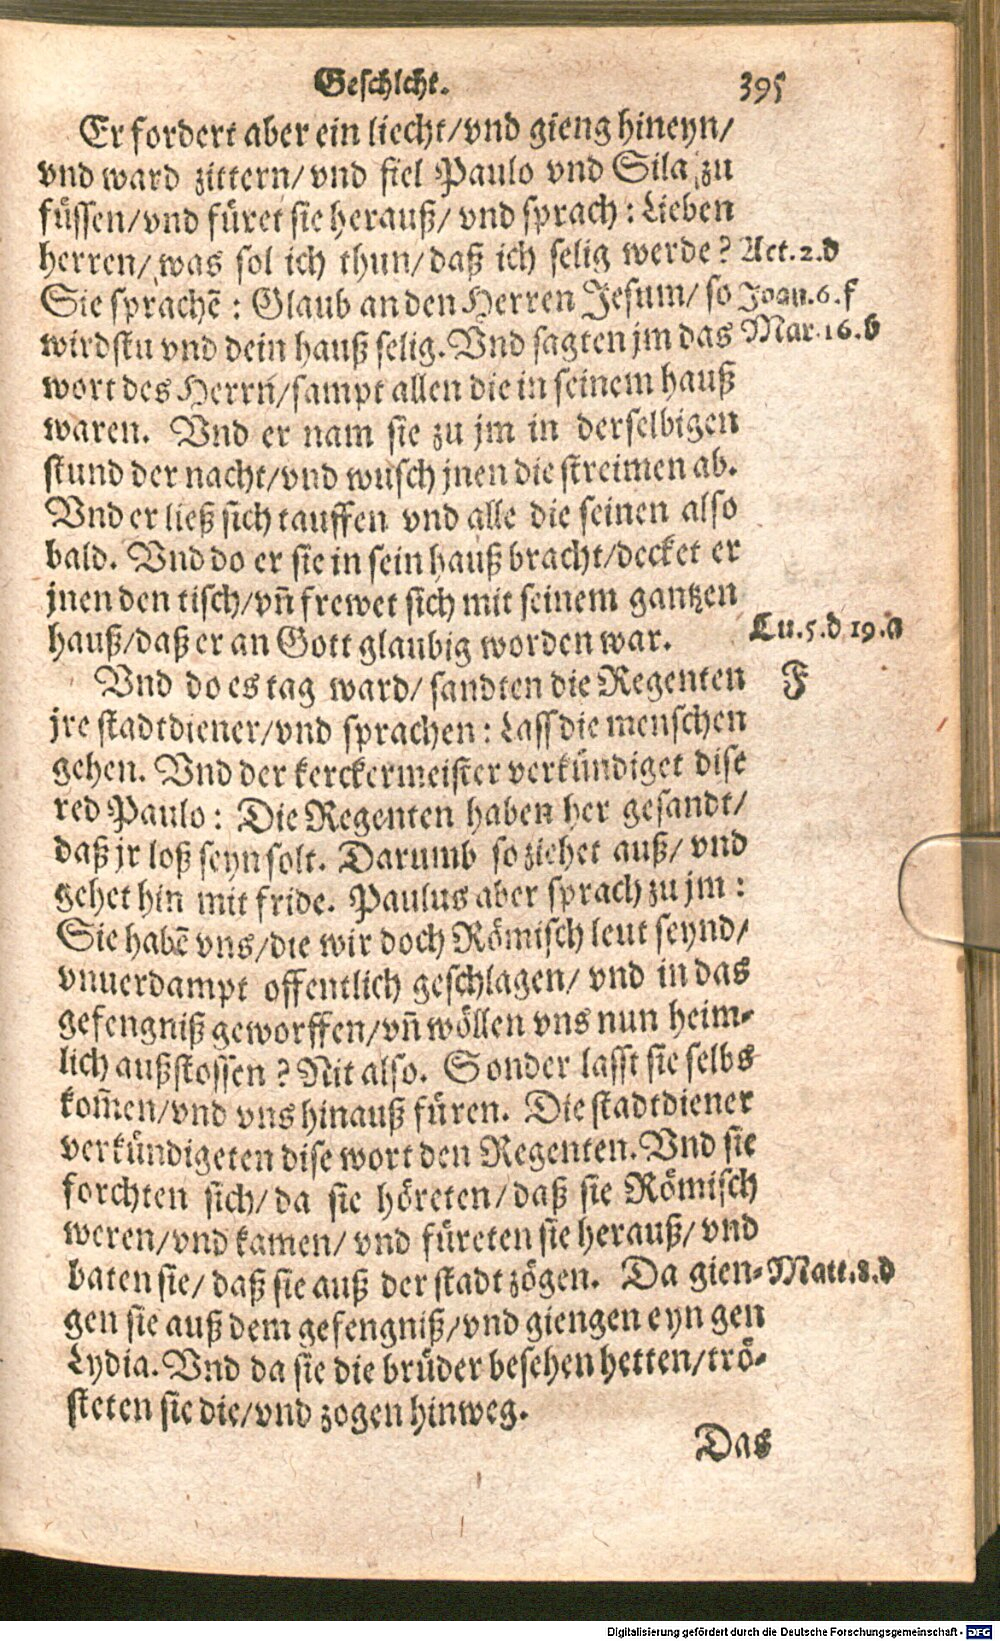 Geschicht. 395
Er fordert aber ein liecht/vnd gieng hineyn/
vnd ward zittern/vnd fiel Paulo vnd Sila zu
füssen/vnd füret sie herauß/vnd sprach: Lieben
herren/was sol ich thun/daß ich selig werde? Act.2.d
Sie sprachē: Glaub an den Herren Jesum/so Joan.6.f
wirdstu vnd dein hauß selig. Vnd sagten jm das Mar.16.b
wort des Herrn/sampt allen die in seinem hauß
waren. Vnd er nam sie zu jm in derselbigen
stund der nacht/vnd wusch jnen die streimen ab.
Vnd er ließ sich tauffen vnd alle die seinen also
bald. Vnd do er sie in sein hauß bracht/decket er
jnen den tisch/vn̄ frewet sich mit seinem gantzen
hauß/daß er an Gott glaubig worden war. Lu.5.d 19.a
Vnd do es tag ward/sandten die Regenten F
jre stadtdiener/vnd sprachen: Lass die menschen
gehen. Vnd der kerckermeister verkündiget dise
red Paulo: Die Regenten haben her gesandt/
daß jr loß seyn solt. Darumb so ziehet auß/vnd
gehet hin mit fride. Paulus aber sprach zu jm:
Sie habē vns/die wir doch Römisch leut seynd/
vnuerdampt offentlich geschlagen/vnd in das
gefengniß geworffen/vn̄ wöllen vns nun heim-
lich außstossen? Nit also. Sonder lasst sie selbs
kom̄en/vnd vns hinauß füren. Die stadtdiener
verkündigeten dise wort den Regenten. Vnd sie
forchten sich/da sie höreten/daß sie Römisch
weren/vnd kamen/vnd füreten sie herauß/vnd
baten sie/daß sie auß der stadt zögen. Da gien- Matt.8.d
gen sie auß dem gefengniß/vnd giengen eyn gen
Lydia. Vnd da sie die brüder besehen hetten/trö-
steten sie die/vnd zogen hinweg.
Das
Digitalisierung gefördert durch die Deutsche Forschungsgemeinschaft - DFG